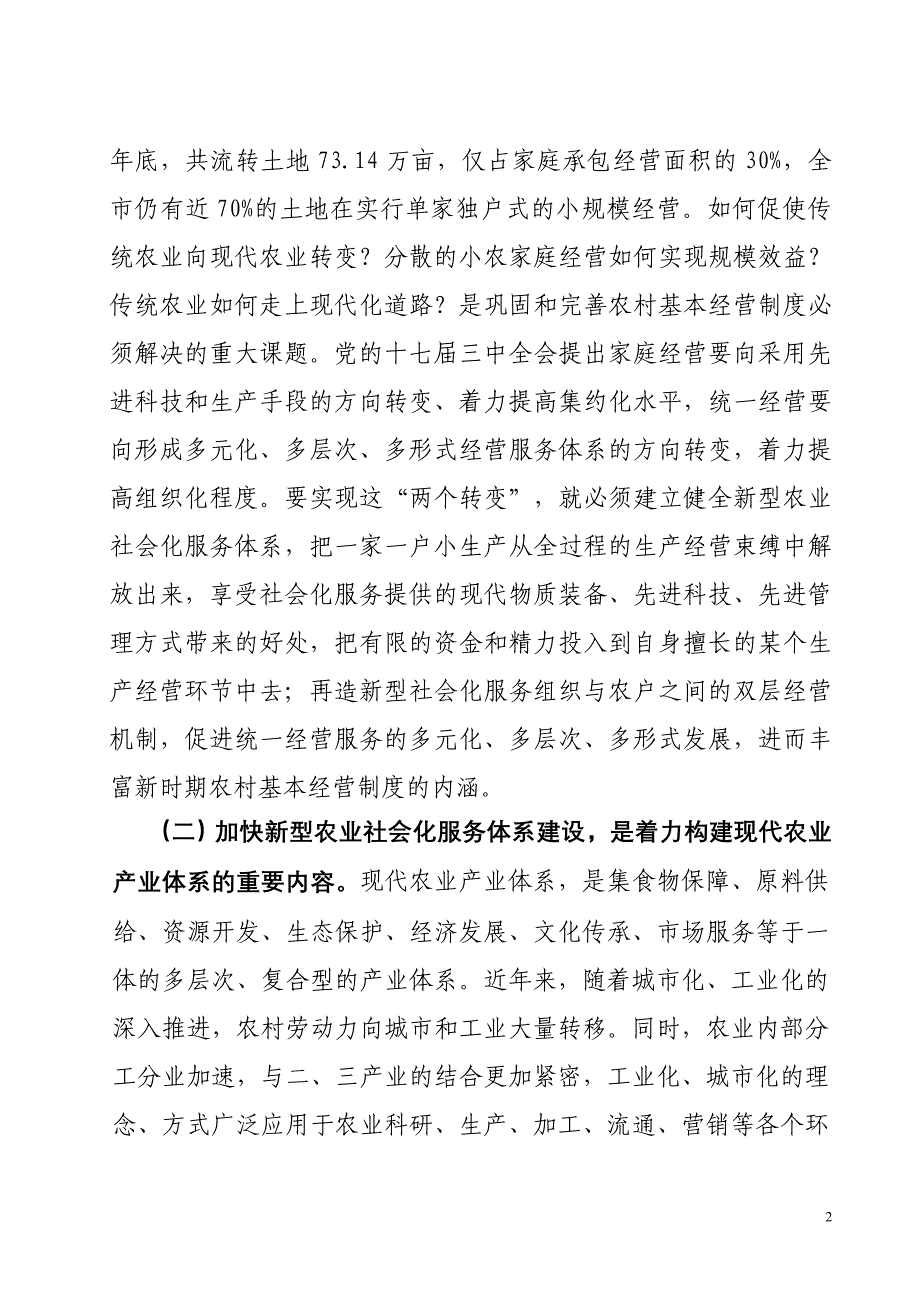 年底，共流转土地 73.14 万亩，仅占家庭承包经营面积的 30%，全
市仍有近 70%的土地在实行单家独户式的小规模经营。如何促使传
统农业向现代农业转变？分散的小农家庭经营如何实现规模效益？
传统农业如何走上现代化道路？是巩固和完善农村基本经营制度必
须解决的重大课题。党的十七届三中全会提出家庭经营要向采用先
进科技和生产手段的方向转变、着力提高集约化水平，统一经营要
向形成多元化、多层次、多形式经营服务体系的方向转变，着力提
高组织化程度。要实现这“两个转变”，就必须建立健全新型农业
社会化服务体系，把一家一户小生产从全过程的生产经营束缚中解
放出来，享受社会化服务提供的现代物质装备、先进科技、先进管
理方式带来的好处，把有限的资金和精力投入到自身擅长的某个生
产经营环节中去；再造新型社会化服务组织与农户之间的双层经营
机制，促进统一经营服务的多元化、多层次、多形式发展，进而丰
富新时期农村基本经营制度的内涵。
（二）加快新型农业社会化服务体系建设，是着力构建现代农业
产业体系的重要内容。现代农业产业体系，是集食物保障、原料供
给、资源开发、生态保护、经济发展、文化传承、市场服务等于一
体的多层次、复合型的产业体系。近年来，随着城市化、工业化的
深入推进，农村劳动力向城市和工业大量转移。同时，农业内部分
工分业加速，与二、三产业的结合更加紧密，工业化、城市化的理
念、方式广泛应用于农业科研、生产、加工、流通、营销等各个环
2